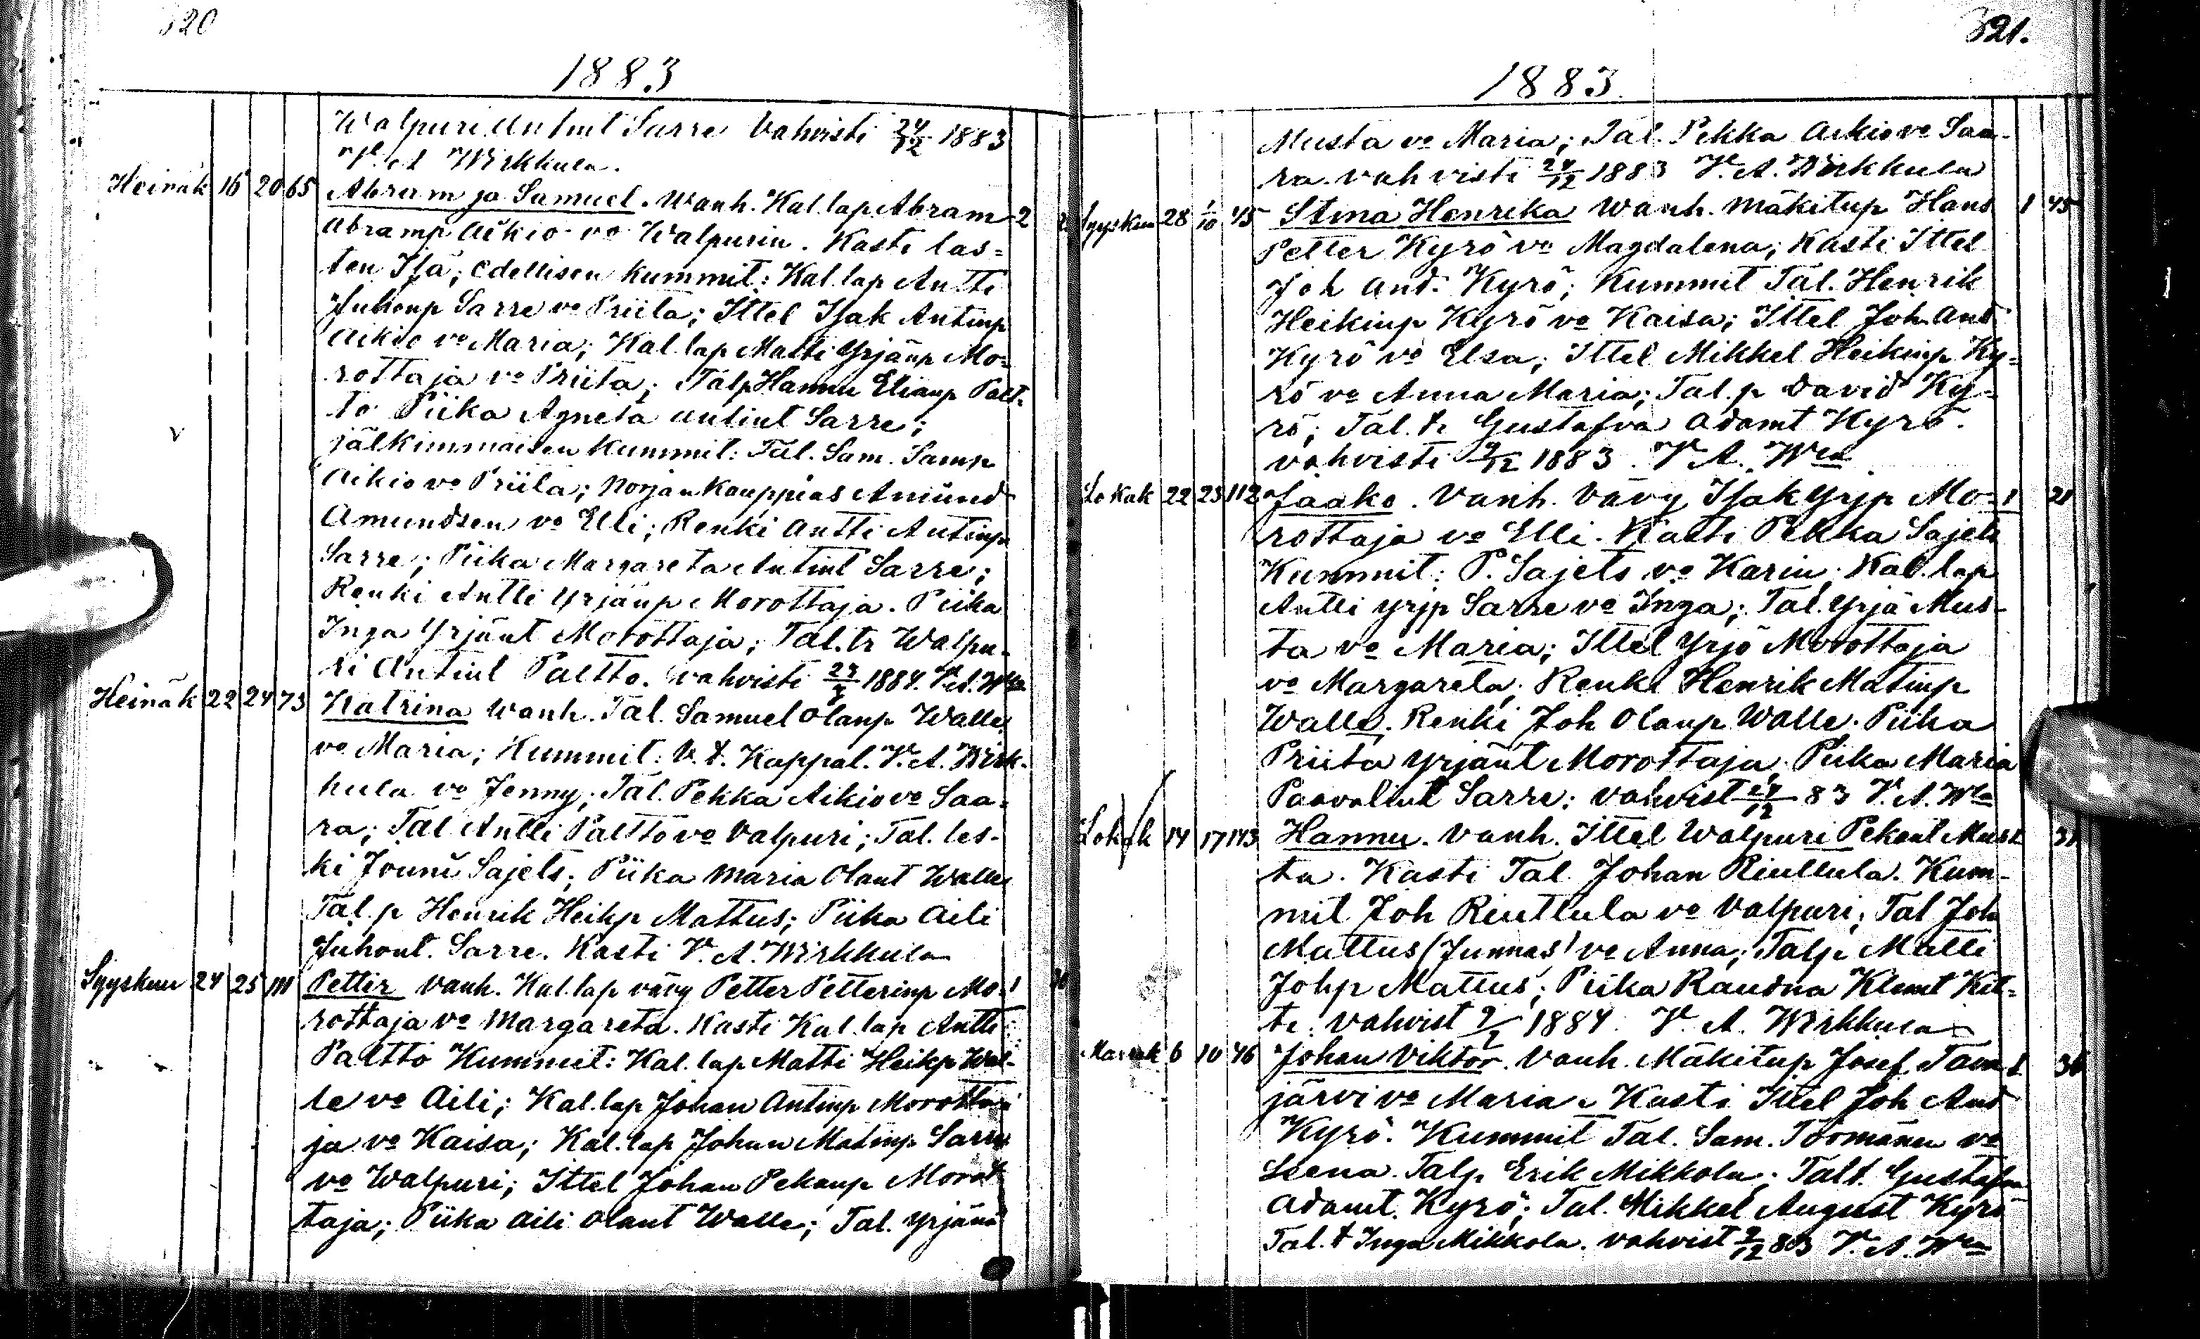 320
1883
Walpuri Antint Sarre Vahvisti 24/12 1883
V. A. Wirkkula.
Heinäk 16 20 65 Abram ja Samuel. Wanh. Kal.lap Abram 2
Abramp Aikio vo Walpurin. Kasti las=
ten Isä; Edellisen kummit: Kal.lap Antti
Juhonp Sarre vo Priita; Ittel Isak Antinp
Aikio vo Maria; Kal.lap Matti Yrjänp Mo=
rottaja vo Priita; Talp Hannu Eliaup Palt=
to Piika Agneta Antint Sarre;
jälkimmäisen Kummit: Tal. Sam. Samp
Aikio vo Priita; Norjan Kauppias Amund
Amundsen vo Elli; Renki Antti Antinp
Sarre; Piika Margareta Antint Sarre;
Renki Antti Yrjänp Morottaja. Piika
Inga Yrjänt Morottaja; Tal. tr Walpu=
ri Antint Paltto. vahvisti 1884. V. A. Wla
Heinäk 22 24 73 Katrina Wanh. Tal. Samuel Olanp Walle
vo Maria; Kummit: V. t. Kappal. V. A. Wirk=
kula vo Jenny; Tal. Pekka Aikio vo Saa=
ra; Tal Antti Paltto vo Valpuri; Tal. les=
ki Jouni Sajets; Piika Maria Olant Walle
Tal. p Henrik Heikp Mattus; Piika Aili
Juhont. Sarre. Kasti V. A. Wirkkula
Syyskuu 24 25 111 Petter Vanh. Kal.lap vävy Petter Petterinp Mo= 1
rottaja vo Margareta. Kasti Kal.lap Antti
Paltto Kummit: Kal.lap Matti Heikp Wal=
le vo Aili; Kal.lap Johan Antinp Morotta
ja vo Kaisa; Kal.lap Johan Matinp Sarre
vo Walpuri; Ittel Johan Pekanp Morot
taja; Piika Aili Olant Walle; Tal. Yrjänä
321.
1883.
Musta vo Maria; Tal. Pekka Aikio vo Saa=
ra. vahvisti 24/12 1883 V. A. Wirkkula
Syyskuu 28 1/10 45 Stina Henrika Wanh. Mäkitup Hans 1 45
Petter Kyrö vo Magdalena; Kasti Ittel
Joh And. Kyrö; Kummit Tal. Henrik
Heikinp Kyrö vo Kaisa; Ittel Joh. And
Kyrö vo Elsa; Ittel Mikkel Heikinp Ky=
rö vo Anna Maria; Tal. p David Ky=
rö; Tal. tr Gustafva Adamt Kyrö.
vahvisti 9/12 1883. V. A. Wla
Lokak 22 23 112 Jaako. Vanh. Vävy Isak Yrjp Mo= 1 21
rottaja vo Elli. Kasti Pekka Sajets
Kummit: P. Sajets vo Karin; Kal. lap
Antti Yrjp Sarre vo Inga; Tal. Yrjä Mus=
ta vo Maria; Ittel Yrjö Morottaja
vo Margareta; Renki Henrik Matinp
Walle. Renki Joh Olanp Walle. Piika
Priita Yrjänt Morottaja; Piika Maria
Paavalint Sarre; vahvist 24/12 83 V. A. Wla
Lokak 14 17 143 Hannu. Vanh. Ittel Walpuri Pekant Mus
ta. Kasti Tal. Johan Riuttula. Kum=
mit Joh Riuttula vo Valpuri; Tal Joh
Mattus (Junnas) vo Anna; Talp Matti
Johp Mattus; Piika Raudna Klemt Kit=
ti. vahvist 9/2 1884. V. A. Wirkkula
Marrask 6 10 46 Johan Viktor. Vanh. Mäkitup Josef Tam 1
järvi vo Maria. Kasti Ittel Joh And
Kyrö. Kummit Tal. Sam. Toomänen vo
Leena. Talp Erik Mikkola; Talt. Gustafva
Adamt. Kyrö; Tal. Mikkel August Kyrö
Tal. t Inga Mikkola. vahvist 9/12 83 V. A. Wla